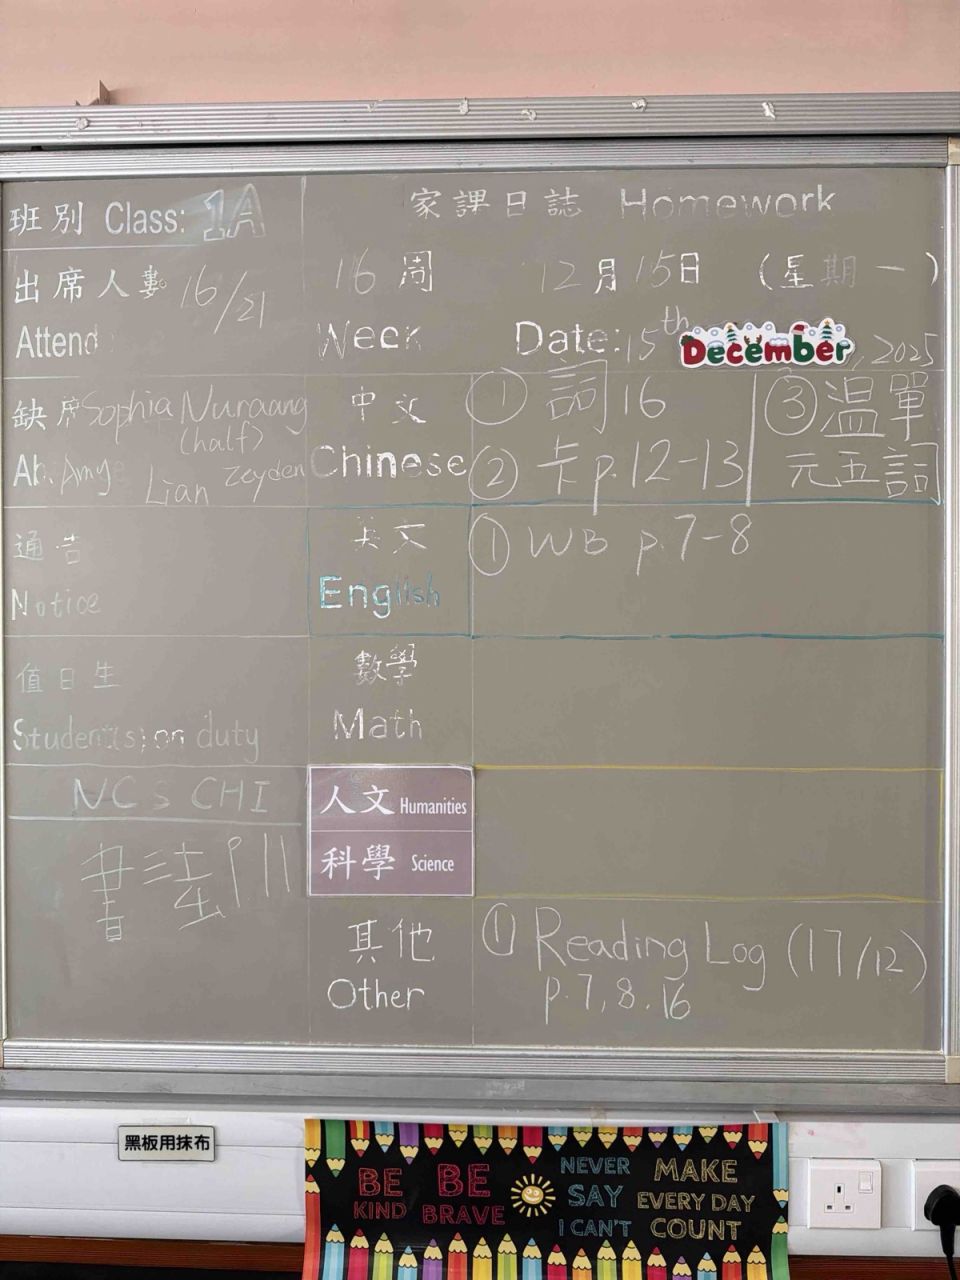 班別 Class: 1A
家課日誌 Homework
出席人數 16/21
Attend
16 周
Week
12月15日 (星期一)
Date: 15th December, 2025
缺席 Sophia Nuraang
(half)
Ab. Amy Lian Zeyden
中文
Chinese
① 詞16
② 卡p.12-13
③ 温單
元五詞
通告
Notice
英文
English
① WB p.7-8
值日生
Student(s) on duty
數學
Math
NCS CHI
人文 Humanities
科學 Science
其他
Other
① Reading Log (17/12)
p.7, 8, 16
黑板用抹布
BE KIND
BE BRAVE
NEVER SAY I CAN'T
MAKE EVERY DAY COUNT